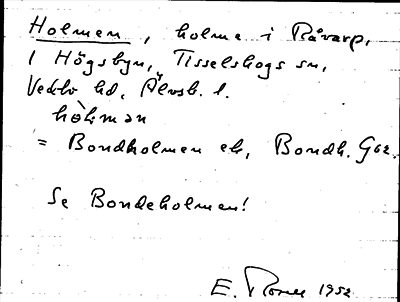 Holmen, holme i Råvarp,
1 Högsbyn, Tisselskogs sn,
Vedbo hd, Älvsb. l.
hòlman
= Bondholmen ek, Bondh. GSz.
Se Bondeholmen!
E. 1952